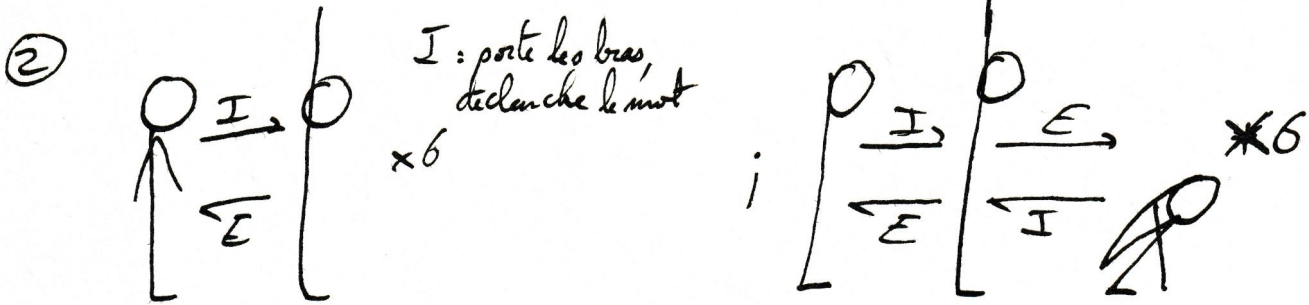 ②
I : porte les bras,
déclanche le mvt
I
E
×6
;
I
E
E
I
×6